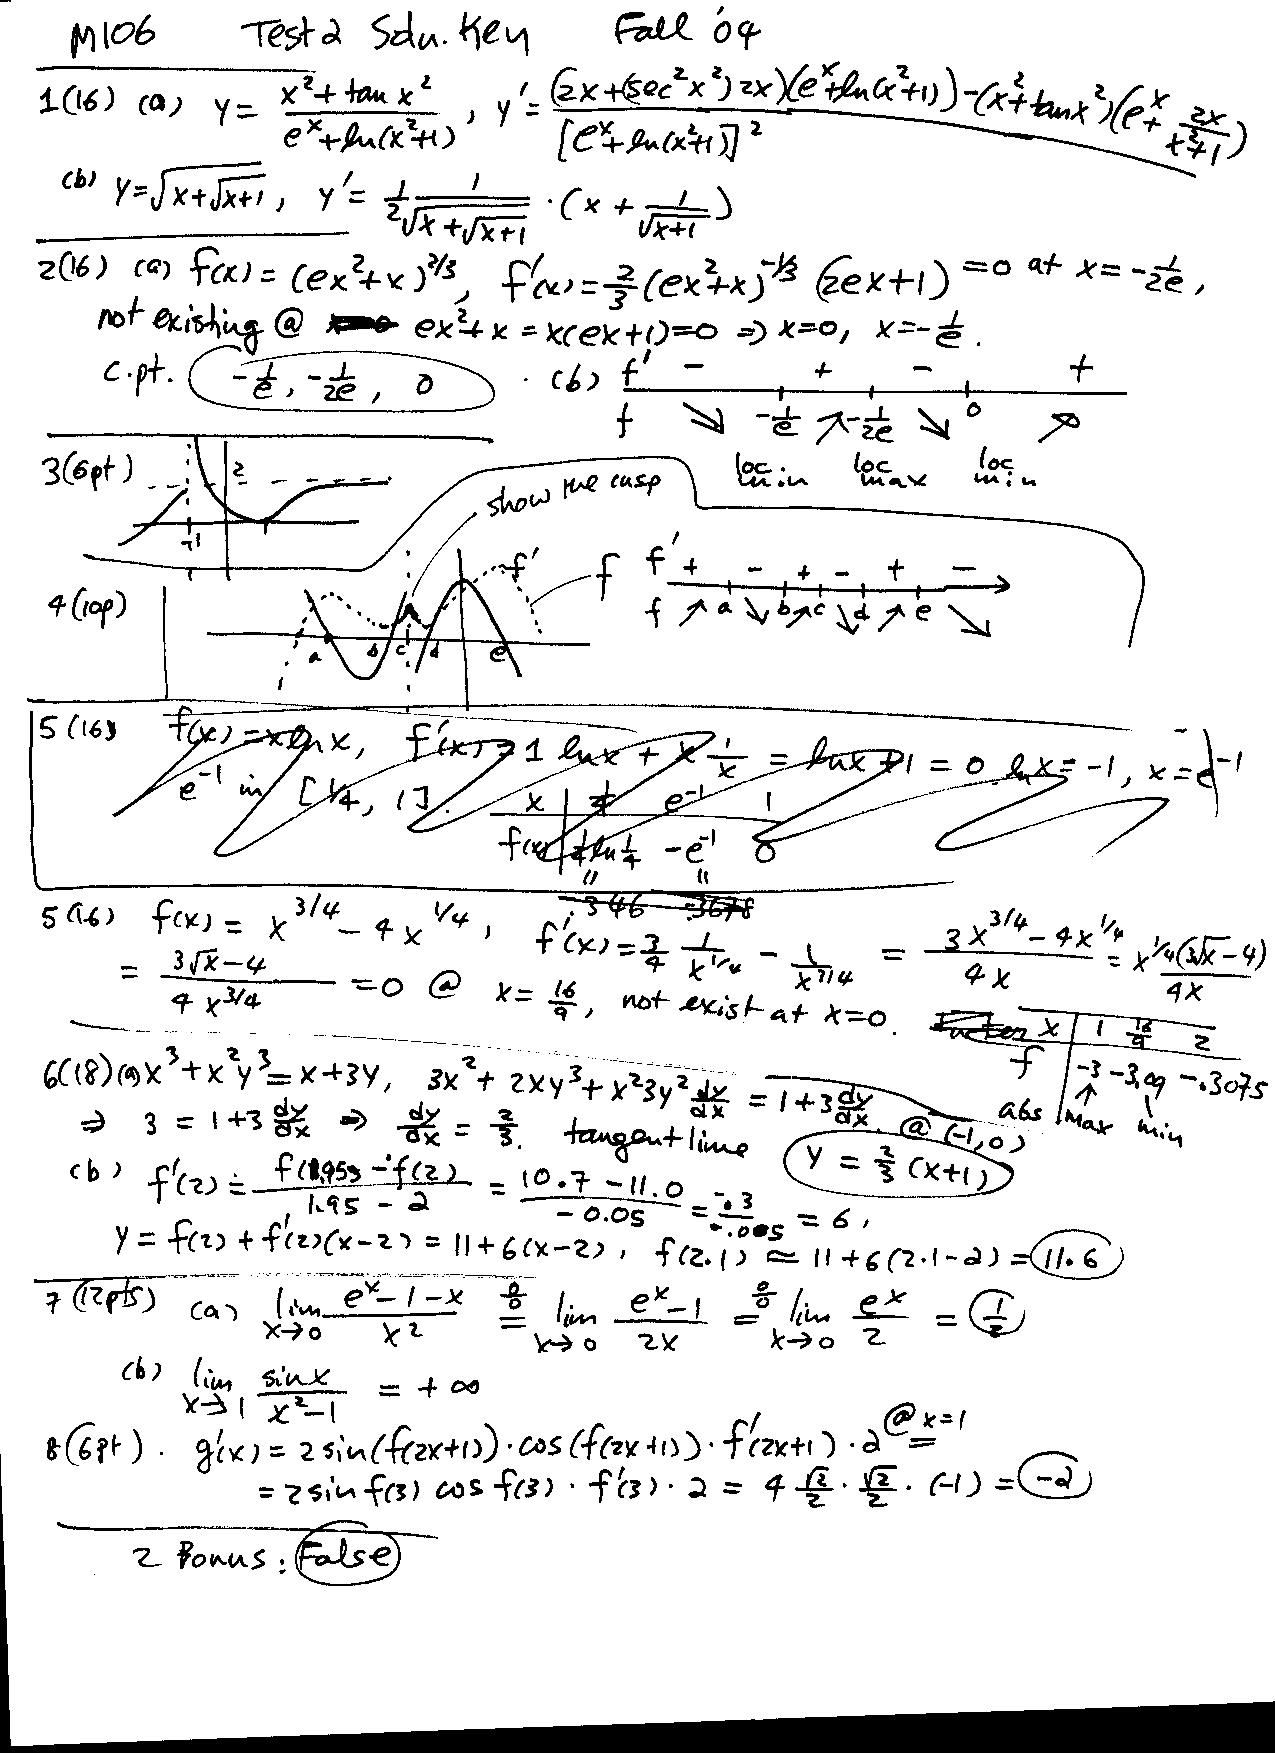 M106 Test 2 Soln. Key Fall '04
1(16) (a) y = (x² + tan x²)/(e^x + ln(x²+1)), y' = ((2x + (sec² x²) 2x)(e^x + ln(x²+1)) - (x² + tan x²)(e^x + 2x/(x²+1)))/[e^x + ln(x²+1)]²
(b) y = √(x + √(x+1)), y' = 1/2 1/√(x + √(x+1)) · (x + 1/√(x+1))
2(16) (a) f(x) = (ex² + x)^2/3, f'(x) = 2/3 (ex² + x)^-1/3 (2ex + 1) = 0 at x = -1/2e,
not existing @ ex² + x = x(ex+1) = 0 ⇒ x = 0, x = -1/e.
c.pt. -1/e, -1/2e, 0 . (b) f' - + - +
f ↘ -1/e ↗ -1/2e ↘ 0 ↗
loc min loc max loc min
3(6pt) 2
-1
show the cusp
4(10p) f' f f' + - + - + -
f ↗ a ↘ b ↗ c ↘ d ↗ e ↘
a b c d e
5(16) f(x) = x ln x, f'(x) = 1 ln x + x 1/x = ln x + 1 = 0 ln x = -1, x = e^-1
e^-1 in [1/4, 1]. x | 1/4 e^-1 1
f(x) | 1/4 ln 1/4 -e^-1 0
" "
.346 .3678
5(16) f(x) = x^3/4 - 4x^1/4, f'(x) = 3/4 1/x^1/4 - 1/x^3/4 = (3x^3/4 - 4x^1/4)/4x = x^1/4(3√x - 4)/4x
= (3√x - 4)/(4 x^3/4) = 0 @ x = 16/9, not exist at x = 0. x | 1 16/9 2
f | -3 -3.09 -.3075
abs max min
6(18) (a) x³ + x²y³ = x + 3y, 3x² + 2xy³ + x²3y² dy/dx = 1 + 3 dy/dx. @ (-1,0)
⇒ 3 = 1 + 3 dy/dx ⇒ dy/dx = 2/3. tangent line y = 2/3 (x+1)
(b) f'(2) ≐ (f(1.95) - f(2))/(1.95 - 2) = (10.7 - 11.0)/(-0.05) = -.3/-.005 = 6,
y = f(2) + f'(2)(x-2) = 11 + 6(x-2), f(2.1) ≃ 11 + 6(2.1-2) = 11.6
7(12pts) (a) lim x→0 (e^x - 1 - x)/x² 0/0 = lim x→0 (e^x - 1)/2x 0/0 = lim x→0 e^x/2 = 1/2
(b) lim x→1 sin x/(x² - 1) = +∞
8(6pt). g'(x) = 2 sin(f(2x+1)) · cos(f(2x+1)) · f'(2x+1) · 2 @ x=1 =
= 2 sin f(3) cos f(3) · f'(3) · 2 = 4 √2/2 · √2/2 · (-1) = -2
2 Bonus: False